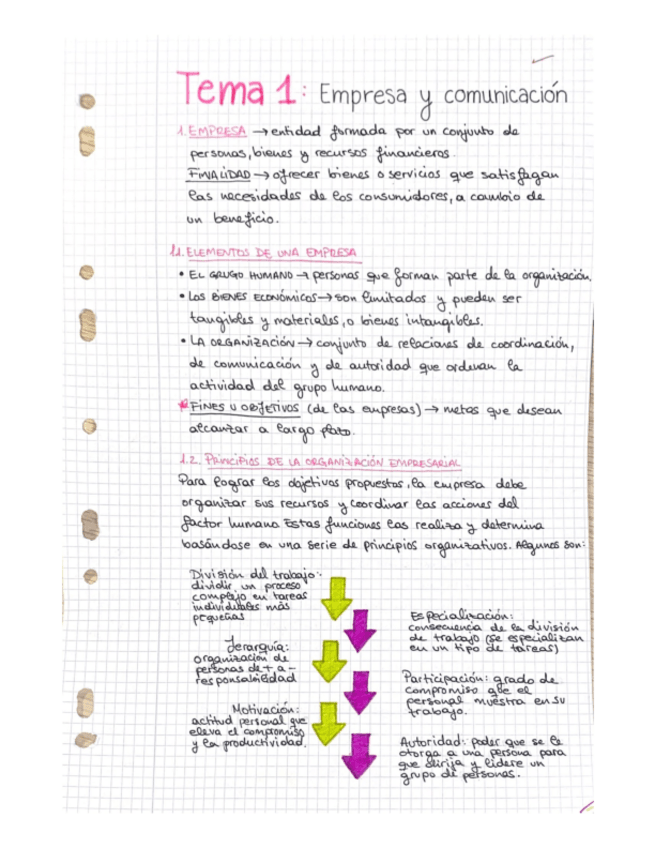 Tema 1: Empresa y comunicación
1. EMPRESA → entidad formada por un conjunto de
personas, bienes y recursos financieros.
FINALIDAD → ofrecer bienes o servicios que satisfagan
las necesidades de los consumidores, a cambio de
un beneficio.
1.1. ELEMENTOS DE UNA EMPRESA
• EL GRUPO HUMANO → personas que forman parte de la organización.
• LOS BIENES ECONÓMICOS → son limitados y pueden ser
tangibles y materiales, o bienes intangibles.
• LA ORGANIZACIÓN → conjunto de relaciones de coordinación,
de comunicación y de autoridad que ordenan la
actividad del grupo humano.
* FINES U OBJETIVOS (de las empresas) → metas que desean
alcanzar a largo plazo.
1.2. PRINCIPIOS DE LA ORGANIZACIÓN EMPRESARIAL
Para lograr los objetivos propuestos, la empresa debe
organizar sus recursos y coordinar las acciones del
factor humano. Estas funciones las realiza y determina
basándose en una serie de principios organizativos. Algunos son:
División del trabajo:
dividir un proceso
complejo en tareas
individuales más
pequeñas
Especialización:
consecuencia de la división
de trabajo (se especializan
en un tipo de tareas)
Jerarquía:
organización de
personas de + a -
responsabilidad
Participación: grado de
compromiso que el
personal muestra en su
trabajo.
Motivación:
actitud personal que
eleva el compromiso
y la productividad.
Autoridad: poder que se le
otorga a una persona para
que dirija y lidere un
grupo de personas.